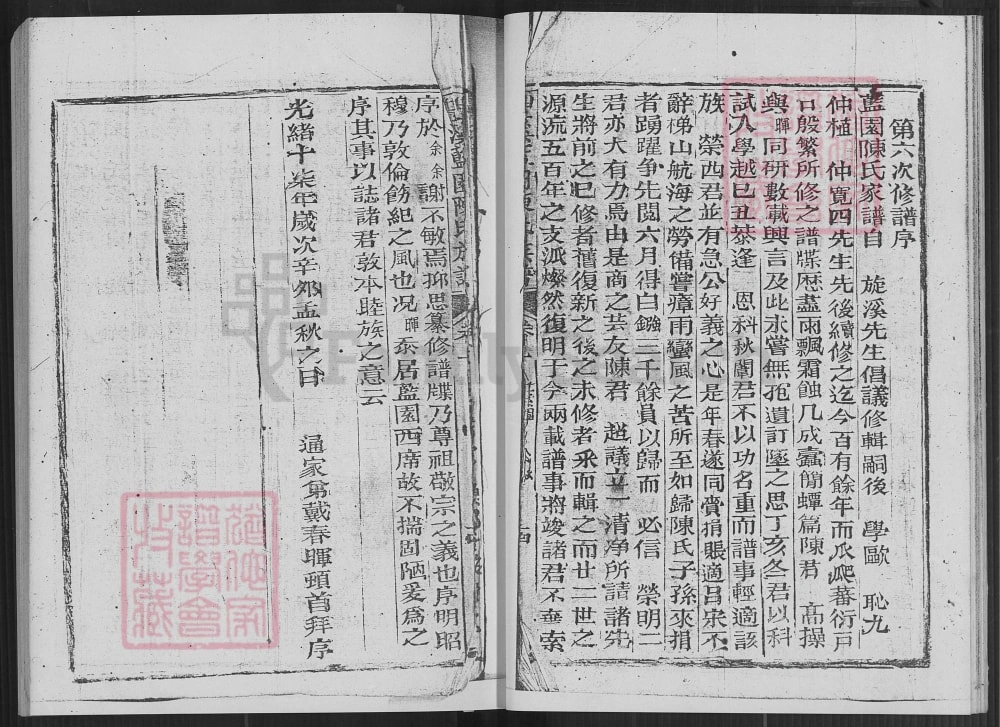 第六次修譜序
藍園陳氏家譜自　旋溪先生倡議修輯嗣後　學歐　恥九
仲植　仲寬四先生先後續修之迄今百有餘年而瓜爬蕃衍戸
口殷繁所修之譜牒歷盡雨飄霜蝕几成蠹簡蟫篇陳君　高操
與暉同研數載興言及此未嘗無孢遺訂墜之思丁亥冬君以科
試入學越已丑恭逢　恩科秋闈君不以功名重而譜事輕適該
族　榮西君並有急公好義之心是年春遂同賫捐賬適呂宋不
辭梯山航海之勞備嘗瘴雨蠻風之苦所至如歸陳氏子孫來捐
者踴躍争先閲六月得白鏹二千餘員以歸而　必信　榮明二
君亦大有力焉由是商之芸友陳君　超議立一清净所請諸先
生將前之已修者舊復新之後之未修者采而輯之而廿二世之
源流五百年之支派燦然復明于今兩載譜事將竣諸君不棄索
序於余余謝不敏焉抑思纂修譜牒乃尊祖敬宗之義也序明昭
穆乃敦倫飭紀之風也况暉忝居藍園西席故不揣固陋爰爲之
序其事以誌諸君敦本睦族之意云
光緒十柒年歲次辛夘孟秋之日　　通家第戴春暉頓首拜序